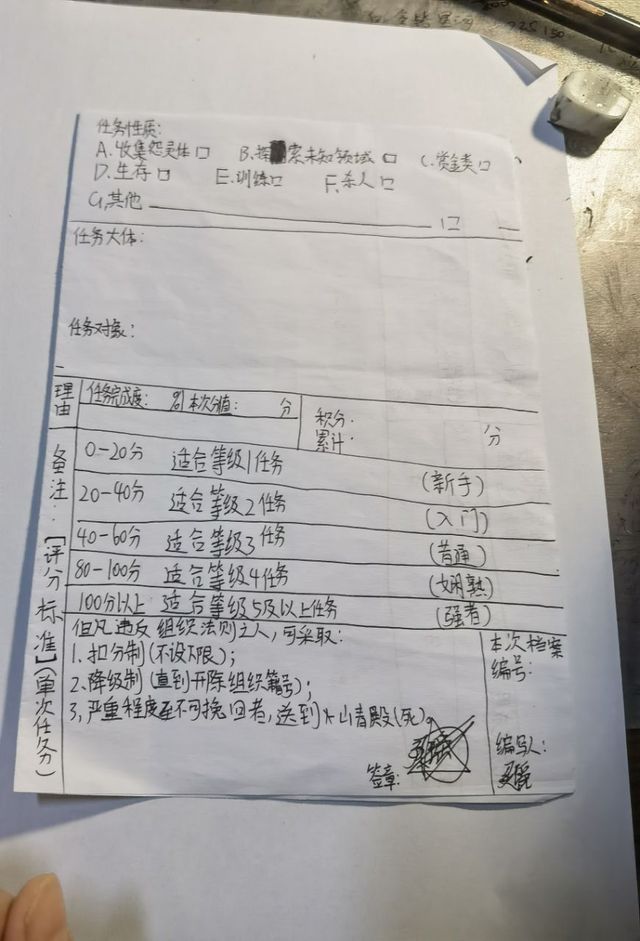 任务性质:
A.收集怨灵体□ B.探索未知领域 □ C.赏金类□
D.生存□ E.训练□ F.杀人□
G.其他 □
任务大体:
任务对象:
理由
任务完成度: % 本次分值: 分
积分
累计: 分
备注:【评分标准】(单次任务)
0-20分 适合等级1任务 (新手)
20-40分 适合等级2任务 (入门)
40-60分 适合等级3任务 (普通)
80-100分 适合等级4任务 (娴熟)
100分以上 适合等级5及以上任务 (强者)
但凡违反组织法则之人,可采取:
1.扣分制(不设下限);
2.降级制(直到开除组织籍号);
3,严重程度至不可挽回者,送到 殿(死)。
签章:
本次档案
编号:
编写人: